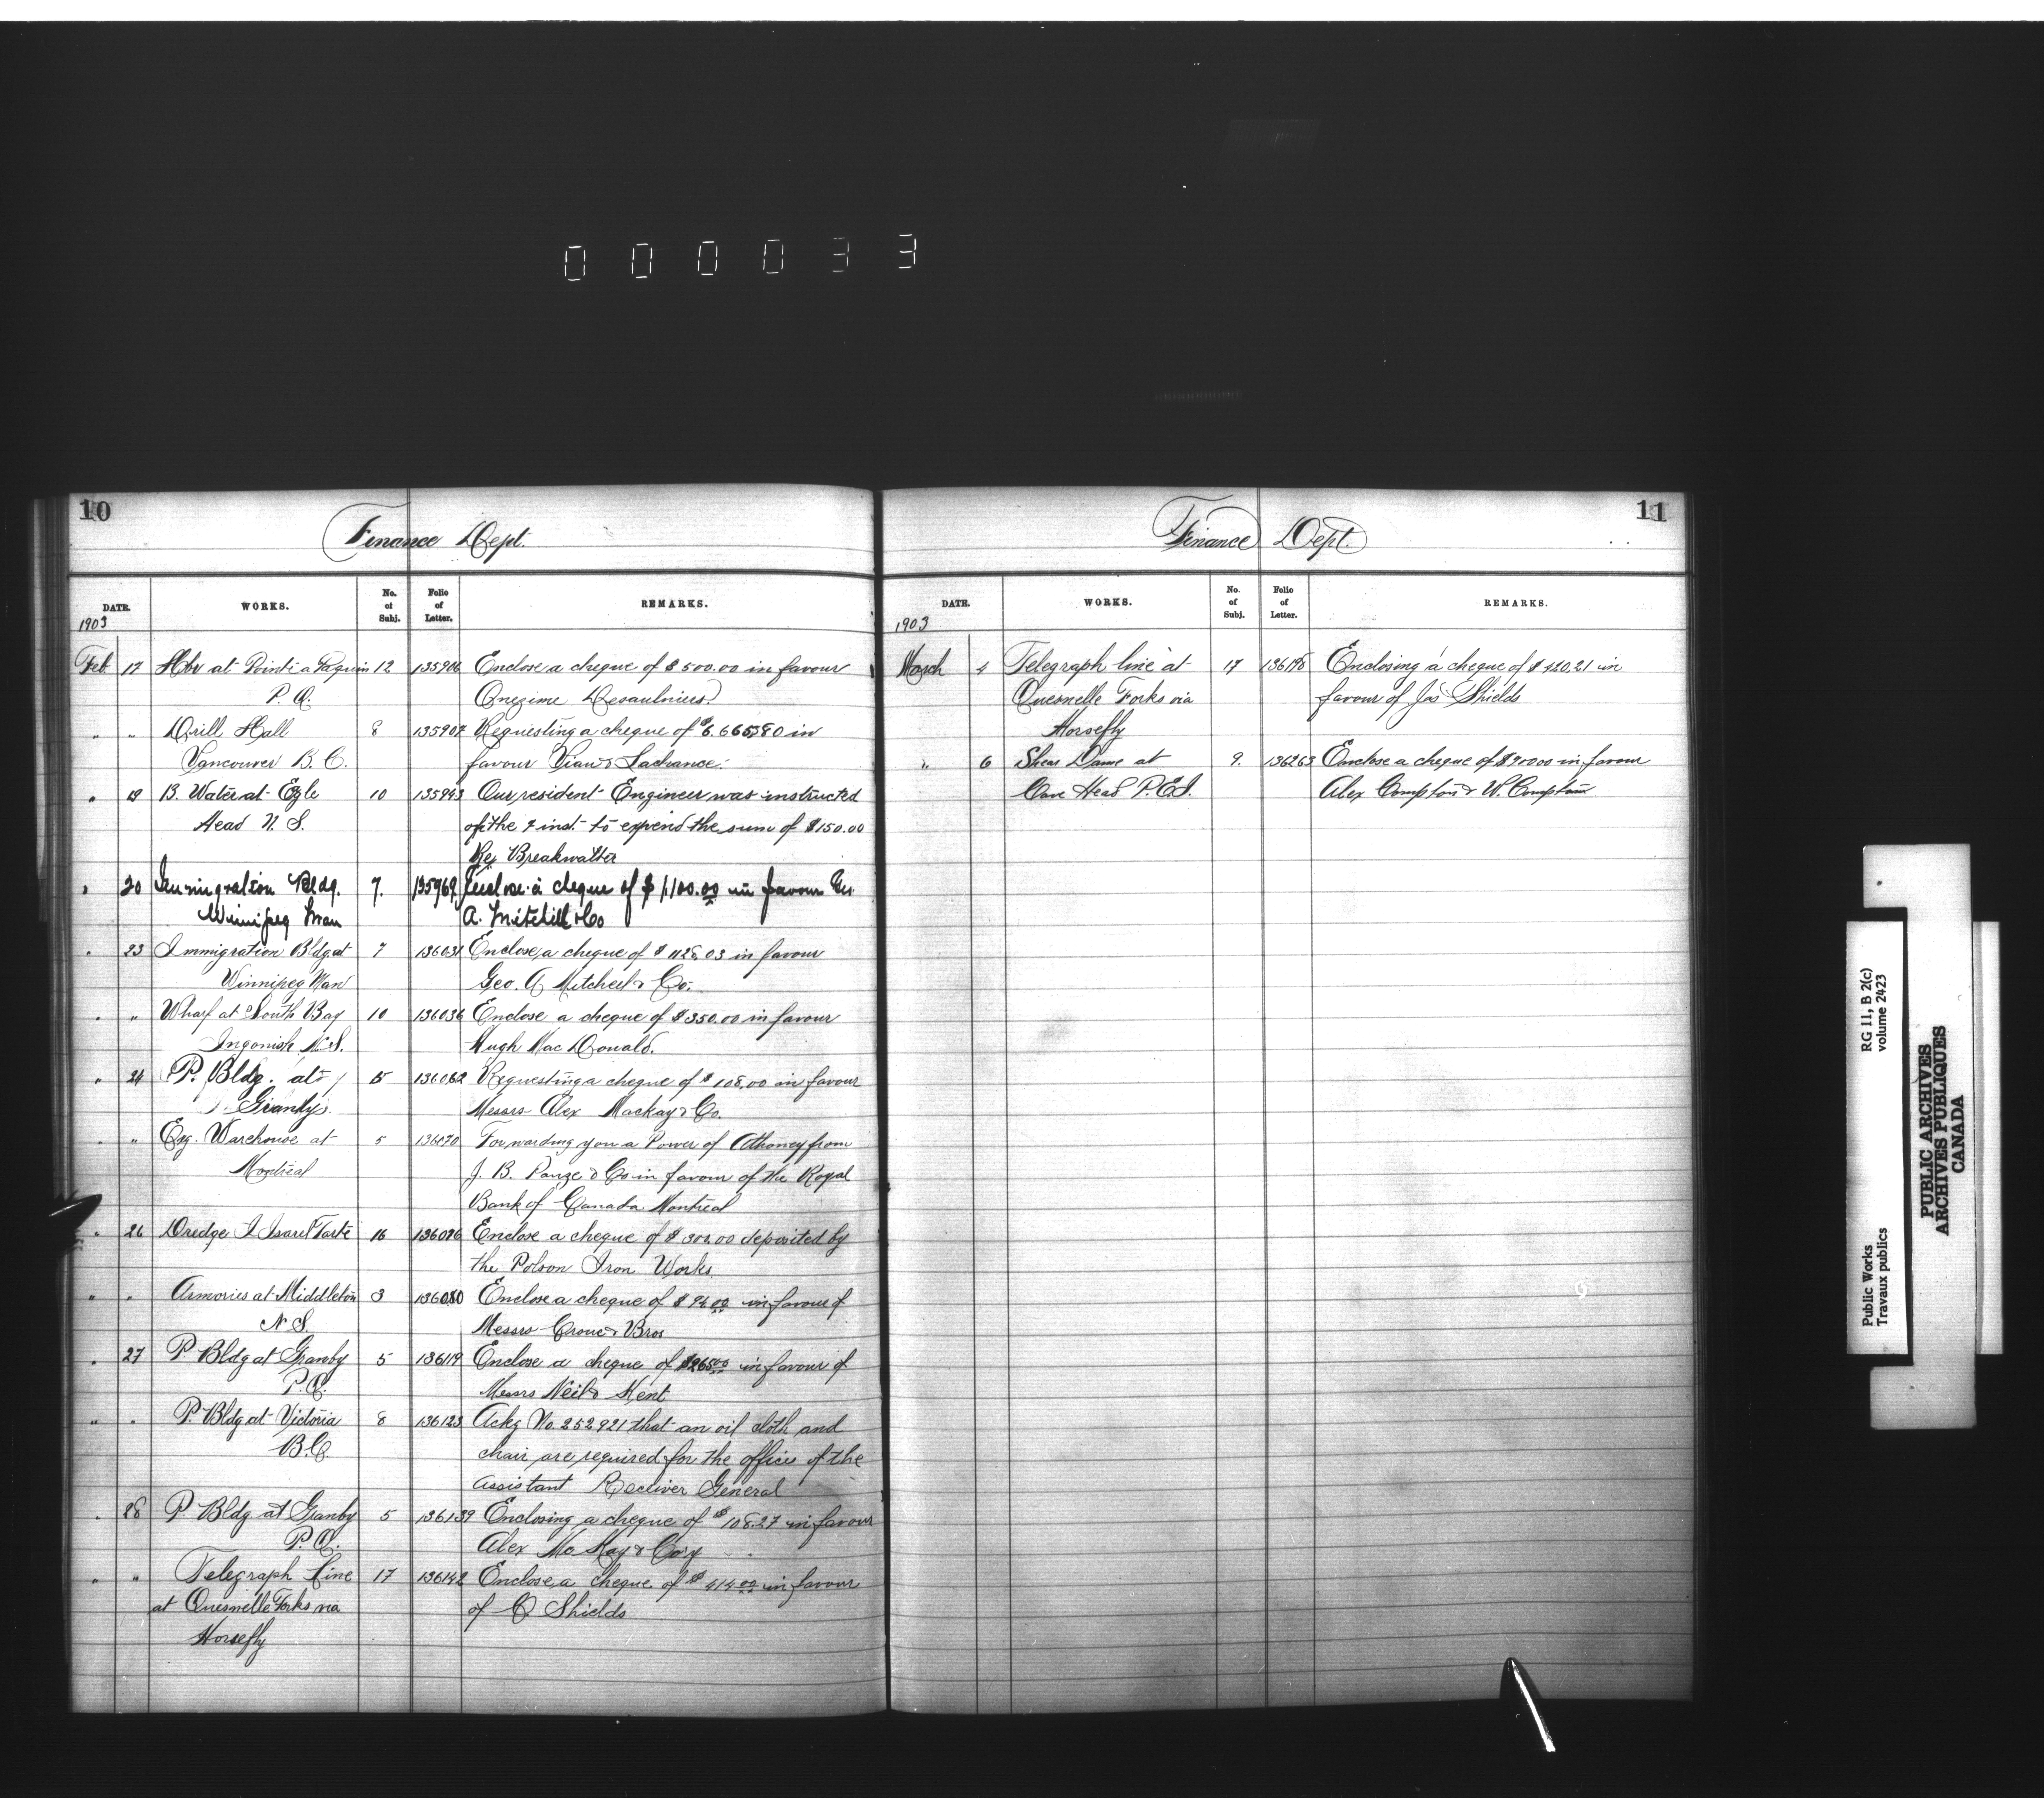 000033
10
Finance Dept.
DATE. WORKS. No. of Subj. Folio of Letter. REMARKS.
1903
Feb 17 Hbr at Pointe a Paquin 12 135906 Enclose a cheque of $500.00 in favour
P. Q. Onezime Desaulniers
" " Drill Hall 8 135907 Requesting a cheque of $6.665.80 in
Vancouver B. C. favour Viau & Lachance.
" 19 B. Water at Egle 10 135943 Our resident Engineer was instructed
Head N. S. of the 7 inst. to expend the sum of $150.00
Re Breakwatter
" 20 Immigration Bldg. 7. 135969 Enclose a cheque of $1,100.00 in favour Geo
Winnipeg Man A. Mitchell & Co
" 23 Immigration Bldg at 7 136031 Enclose a cheque of $1128.03 in favour
Winnipeg Man Geo. A Mitchell & Co.
" " Wharf at South Bay 10 136036 Enclose a cheque of $350.00 in favour
Ingonish N.S. Hugh Mac Donald.
" 24 P. Bldg. at 5 136062 Requesting a cheque of $108.00 in favour
Granby. Messrs Alex Mackay & Co.
" " Exg. Warehouse at 5 136070 Forwarding you a Power of Attorney from
Montreal J. B. Pauze & Co in favour of the Royal
Bank of Canada Montreal
" 26 Dredge J Israel Tarte 16 136076 Enclose a cheque of $ deposited by
the Polson Iron Works
" " Armories at Middleton 3 136080 Enclose a cheque of $94.00 in favour of
N.S. Messrs Croue & Bros
" 27 P. Bldg at Granby 5 136119 Enclose a cheque of $265.00 in favour of
P.Q. Messrs Neil & Kent
" " P. Bldg at Victoria 8 136123 Ackg No. 252921 that an oil cloth and
B.C. chair are required for the office of the
assistant Receiver General
" 28 P Bldg at Granby 5 136139 Enclosing a cheque of $108.27 in favour
P.Q. Alex Mc Kay & Co'y
" " Telegraph Line 17 136142 Enclose a cheque of $414.00 in favour
at Quesnelle Forks via of Shields
Horsefly
11
Finance Dept.
DATE. WORKS. No. of Subj. Folio of Letter. REMARKS.
1903
March 4 Telegraph line at 17 136198 Enclosing a cheque of $420,21 in
Quesnelle Forks via favour of Jas Shields
Horsefly
" 6 Shear Dame at 9. 136263 Enclose a cheque of $900.00 in favour
Cove Head P.E.I. Alex Compton & W. Compton
Public Works
Travaux publics
RG 11, B 2(c)
volume 2423
PUBLIC ARCHIVES
ARCHIVES PUBLIQUES
CANADA